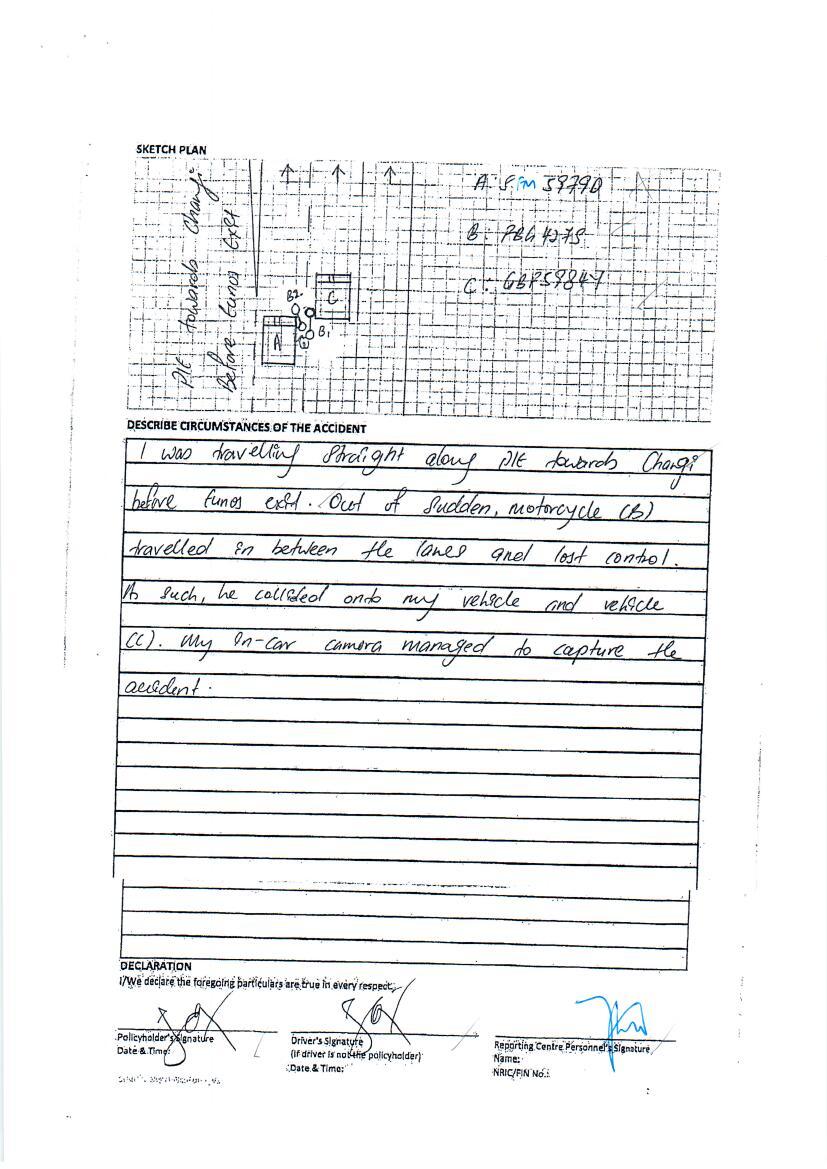 SKETCH PLAN
PIE towards Changi
Before Eunos Exit
B2
C
A
B1
B. FBG 427S
DESCRIBE CIRCUMSTANCES OF THE ACCIDENT
I was travelling straight along PIE towards Changi
before Eunos exit. Out of sudden, motorcycle (B)
travelled in between the lanes and lost control.
As such, he collided onto my vehicle and vehicle
(C). My in-car camera managed to capture the
accident.
DECLARATION
I/We declare the foregoing particulars are true in every respect.
Policyholder's Signature
Date & Time:
Driver's Signature
(If driver is not the policyholder)
Date & Time:
Reporting Centre Personnel's Signature
Name:
NRIC/FIN No.: